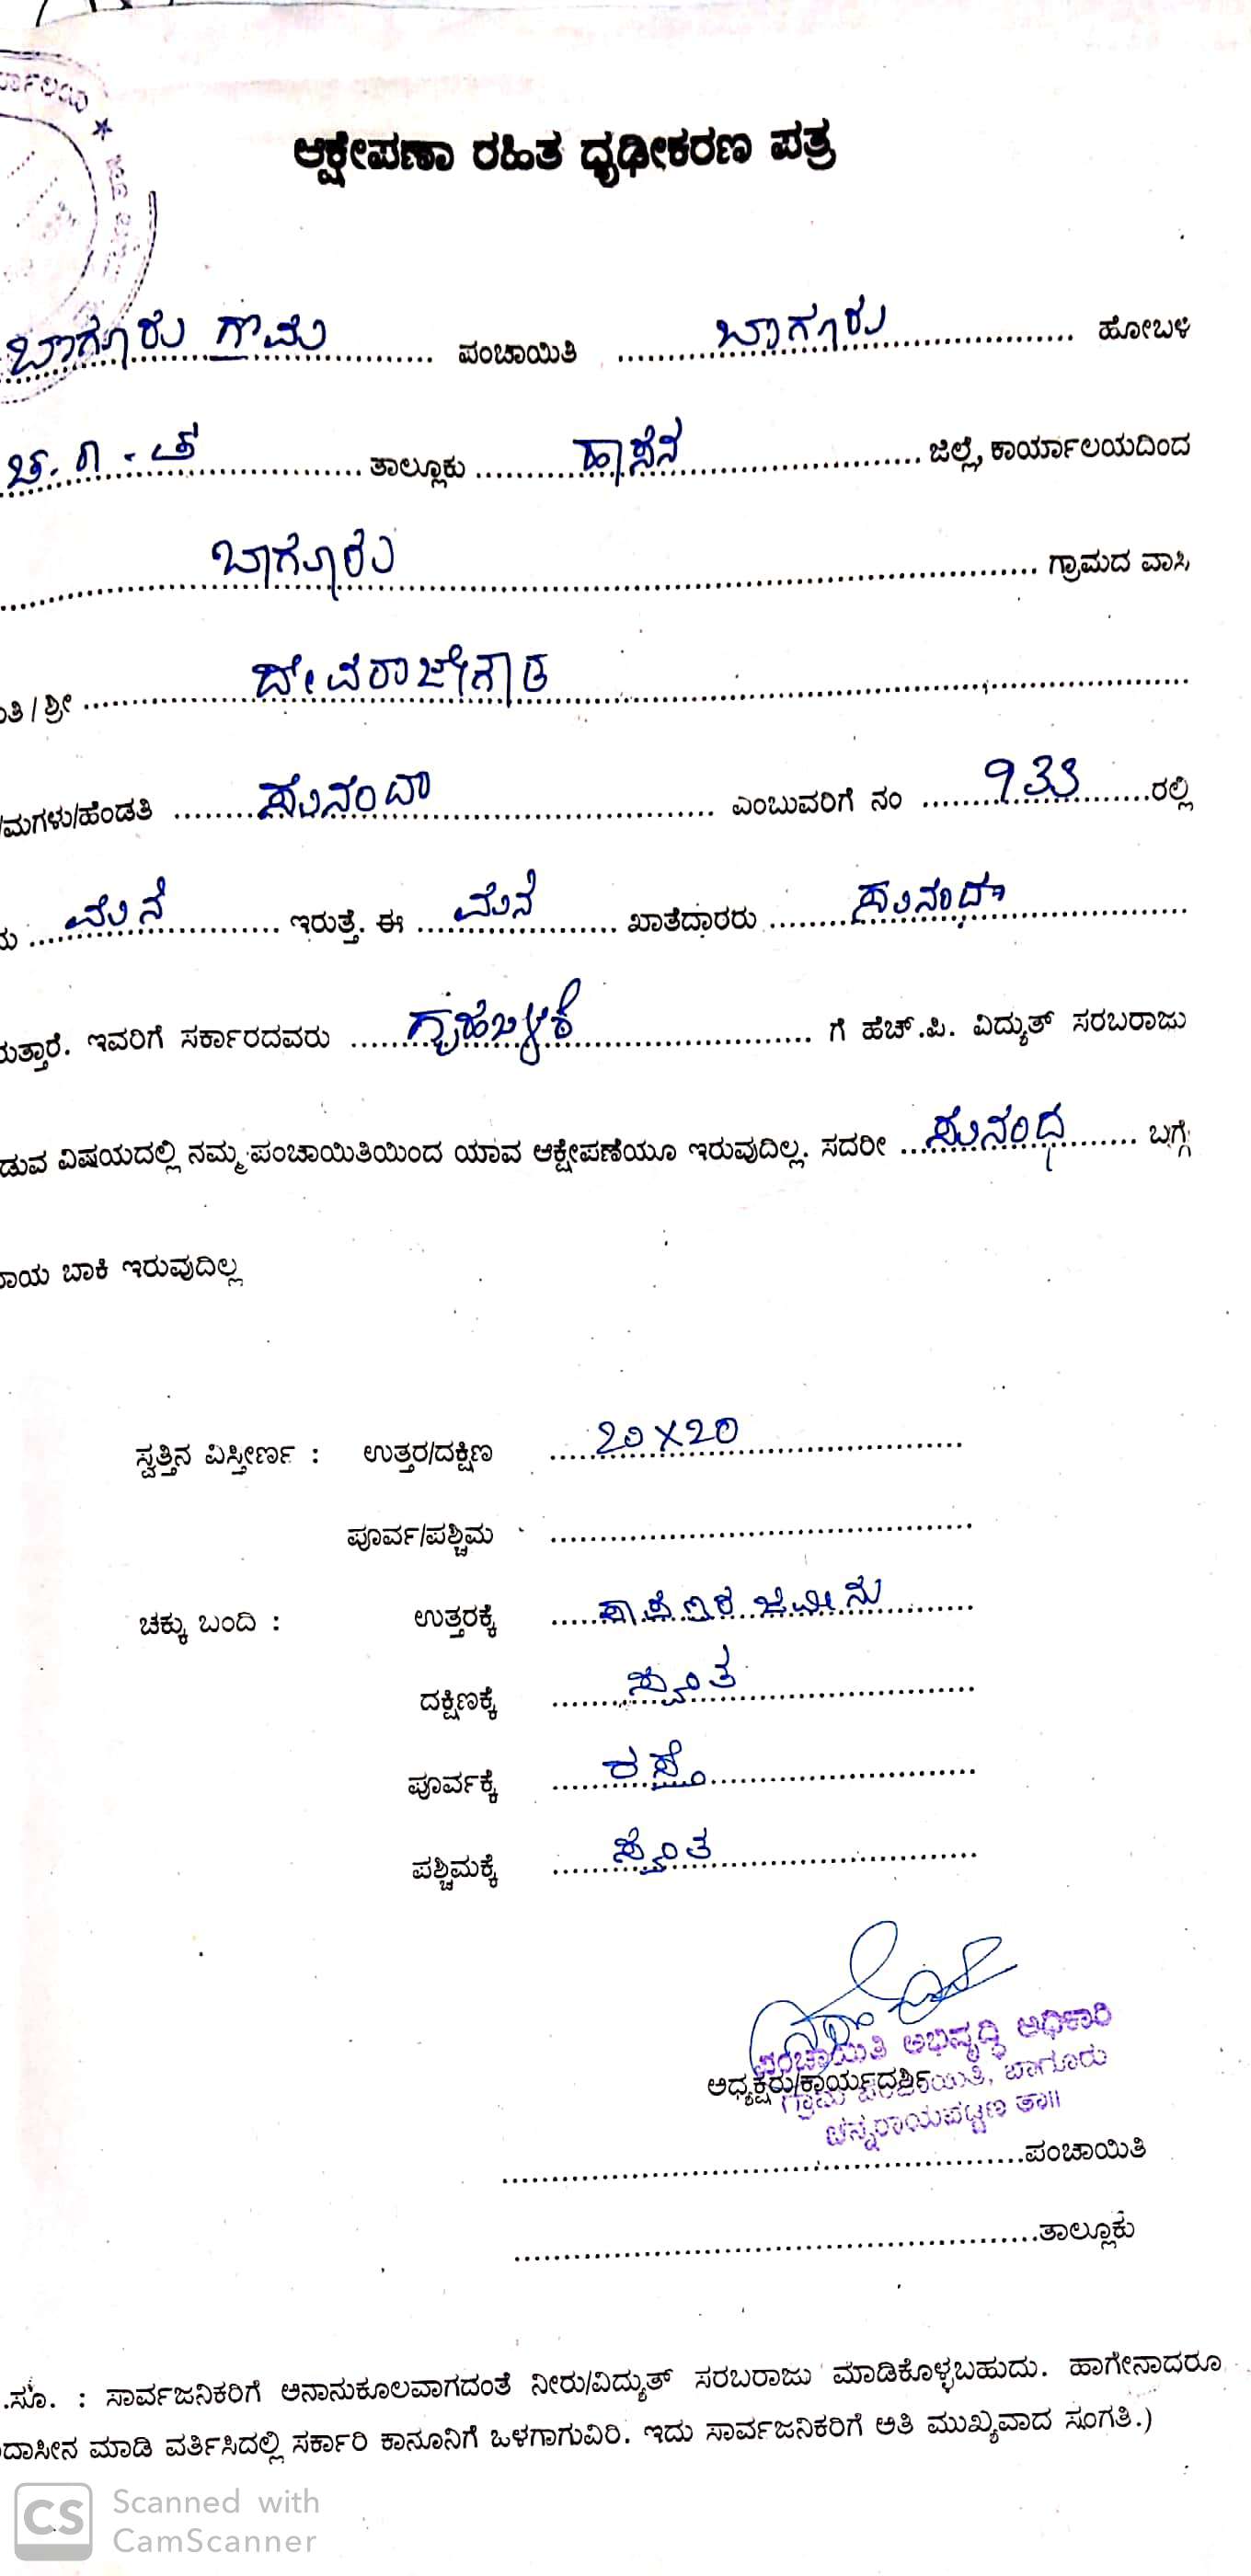 ಆಕ್ಷೇಪಣಾ ರಹಿತ ಧೃಢೀಕರಣ ಪತ್ರ
ಬಾಗೂರು ಗ್ರಾಮ ಪಂಚಾಯಿತಿ ಬಾಗೂರು ಹೋಬಳಿ
ಚ.ರಾ.ಪ ತಾಲ್ಲೂಕು ಹಾಸನ ಜಿಲ್ಲೆ, ಕಾರ್ಯಾಲಯದಿಂದ
ಬಾಗೂರು ಗ್ರಾಮದ ವಾಸಿ
ತಿ / ಶ್ರೀ ದೇವರಾಜೇಗೌಡ
/ಮಗಳು/ಹೆಂಡತಿ ಸುನಂದಾ ಎಂಬುವರಿಗೆ ನಂ ರಲ್ಲಿ
ಮನೆ ಇರುತ್ತೆ. ಈ ಮನೆ ಖಾತೆದಾರರು ಸುನಂದಾ
ರುತ್ತಾರೆ. ಇವರಿಗೆ ಸರ್ಕಾರದವರು ಗೃಹಬಳಕೆ ಗೆ ಹೆಚ್.ಪಿ. ವಿದ್ಯುತ್ ಸರಬರಾಜು
ಡುವ ವಿಷಯದಲ್ಲಿ ನಮ್ಮ ಪಂಚಾಯಿತಿಯಿಂದ ಯಾವ ಆಕ್ಷೇಪಣೆಯೂ ಇರುವುದಿಲ್ಲ. ಸದರೀ ಸುನಂದ ಬಗ್ಗೆ
ದಾಯ ಬಾಕಿ ಇರುವುದಿಲ್ಲ
ಸ್ವತ್ತಿನ ವಿಸ್ತೀರ್ಣ : ಉತ್ತರ/ದಕ್ಷಿಣ 20X20
ಪೂರ್ವ/ಪಶ್ಚಿಮ
ಚಕ್ಕು ಬಂದಿ : ಉತ್ತರಕ್ಕೆ ಜಮೀನು
ದಕ್ಷಿಣಕ್ಕೆ ಸ್ವಂತ
ಪೂರ್ವಕ್ಕೆ ರಸ್ತೆ
ಪಶ್ಚಿಮಕ್ಕೆ ಸ್ವಂತ
ಪಂಚಾಯಿತಿ ಅಭಿವೃದ್ಧಿ ಅಧಿಕಾರಿ
ಅಧ್ಯಕ್ಷರು/ಕಾರ್ಯದರ್ಶಿ
ಗ್ರಾಮ ಪಂಚಾಯಿತಿ, ಬಾಗೂರು
ಚನ್ನರಾಯಪಟ್ಟಣ ತಾ||
ಪಂಚಾಯಿತಿ
ತಾಲ್ಲೂಕು
.ಸೂ. : ಸಾರ್ವಜನಿಕರಿಗೆ ಅನಾನುಕೂಲವಾಗದಂತೆ ನೀರು/ವಿದ್ಯುತ್ ಸರಬರಾಜು ಮಾಡಿಕೊಳ್ಳಬಹುದು. ಹಾಗೇನಾದರೂ
ದಾಸೀನ ಮಾಡಿ ವರ್ತಿಸಿದಲ್ಲಿ ಸರ್ಕಾರಿ ಕಾನೂನಿಗೆ ಒಳಗಾಗುವಿರಿ. ಇದು ಸಾರ್ವಜನಿಕರಿಗೆ ಅತಿ ಮುಖ್ಯವಾದ ಸಂಗತಿ.)
CS Scanned with
CamScanner